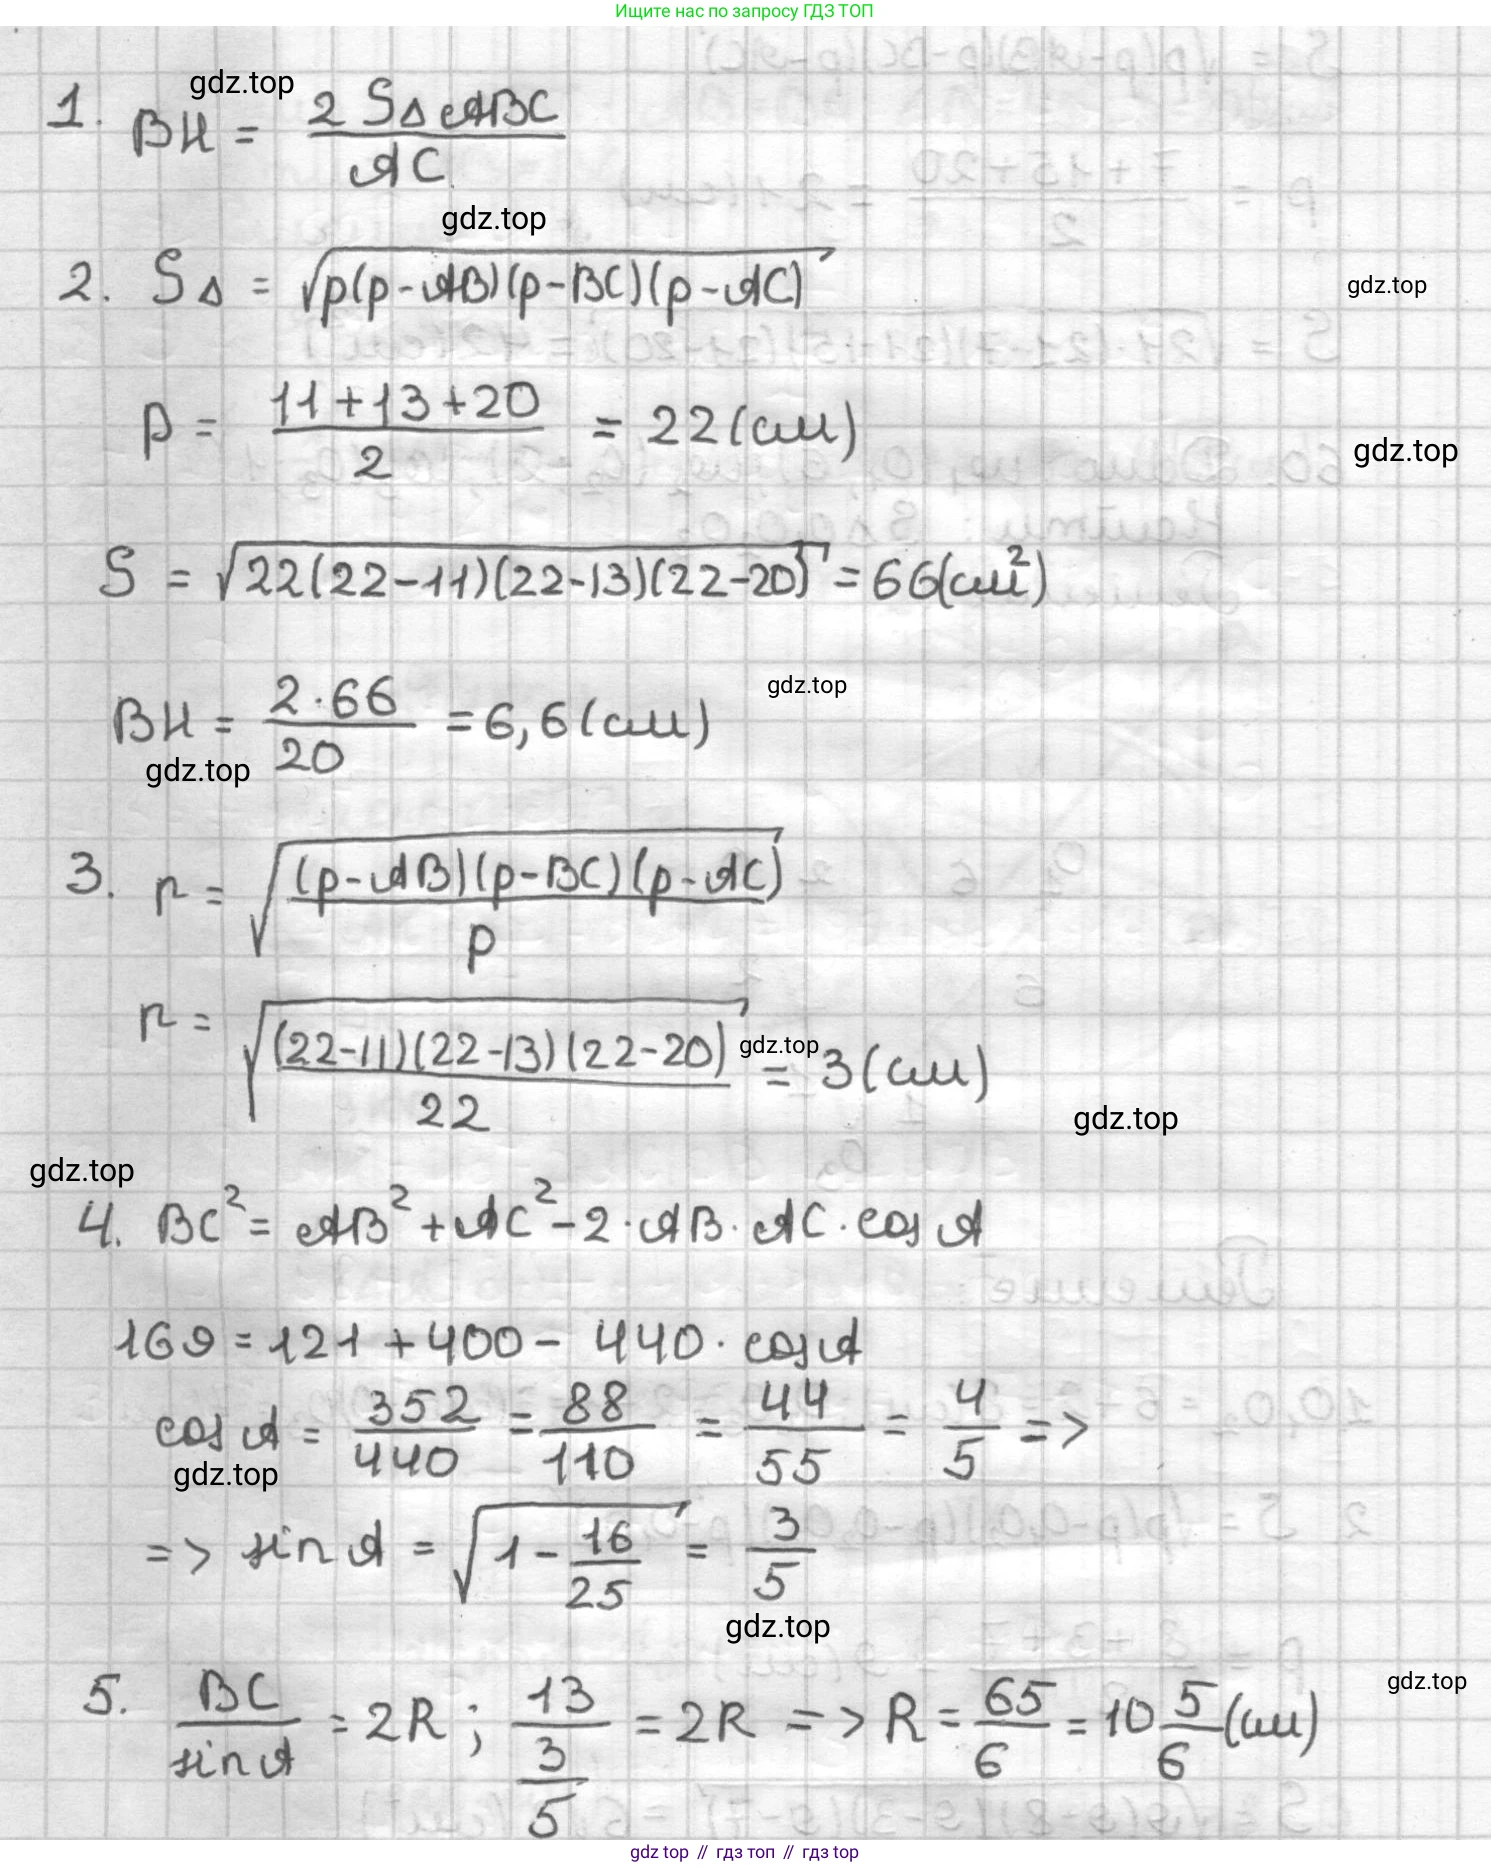 Ищите нас по запросу ГДЗ ТОП
gdz.top
1. BH = 2 S△ABC / AC
gdz.top
2. S△ = √p(p-AB)(p-BC)(p-AC)
gdz.top
p = 11+13+20 / 2 = 22(см)
gdz.top
S = √22(22-11)(22-13)(22-20) = 66(см²)
gdz.top
BH = 2·66 / 20 = 6,6(см)
gdz.top
3. r = √(p-AB)(p-BC)(p-AC) / p
r = √(22-11)(22-13)(22-20) / 22 = 3(см)
gdz.top
gdz.top
gdz.top
4. BC² = AB² + AC² - 2·AB·AC·cos A
169 = 121 + 400 - 440·cos A
cos A = 352/440 = 88/110 = 44/55 = 4/5 =>
gdz.top
=> sin A = √1 - 16/25 = 3/5
gdz.top
gdz.top
5. BC / sin A = 2R; 13 / 3/5 = 2R => R = 65/6 = 10 5/6 (см)
gdz.top // гдз топ // гдз top